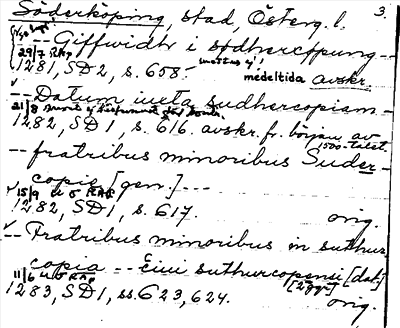 Söderköping, stad, Österg. l. 3.
-- Giffwidtr i sødhercøpung --
29/7 RAp
1281, SD2, s. 658. medeltida avskr.
-- Datum iuxta sudhercopiam --
21/8
1282, SD1, s. 616. avskr. fr. början av 1500-talet.
-- fratribus minoribus Suder-
copie [gen.] ---
15/9 u o RAp
1282, SD1, s. 617. orig.
-- Fratribus minoribus in suthur
copia -- Eiui suthurcopensi [dat.]
11/6 u o RAp [2 ggr]
1283, SD1, ss. 623, 624. orig.